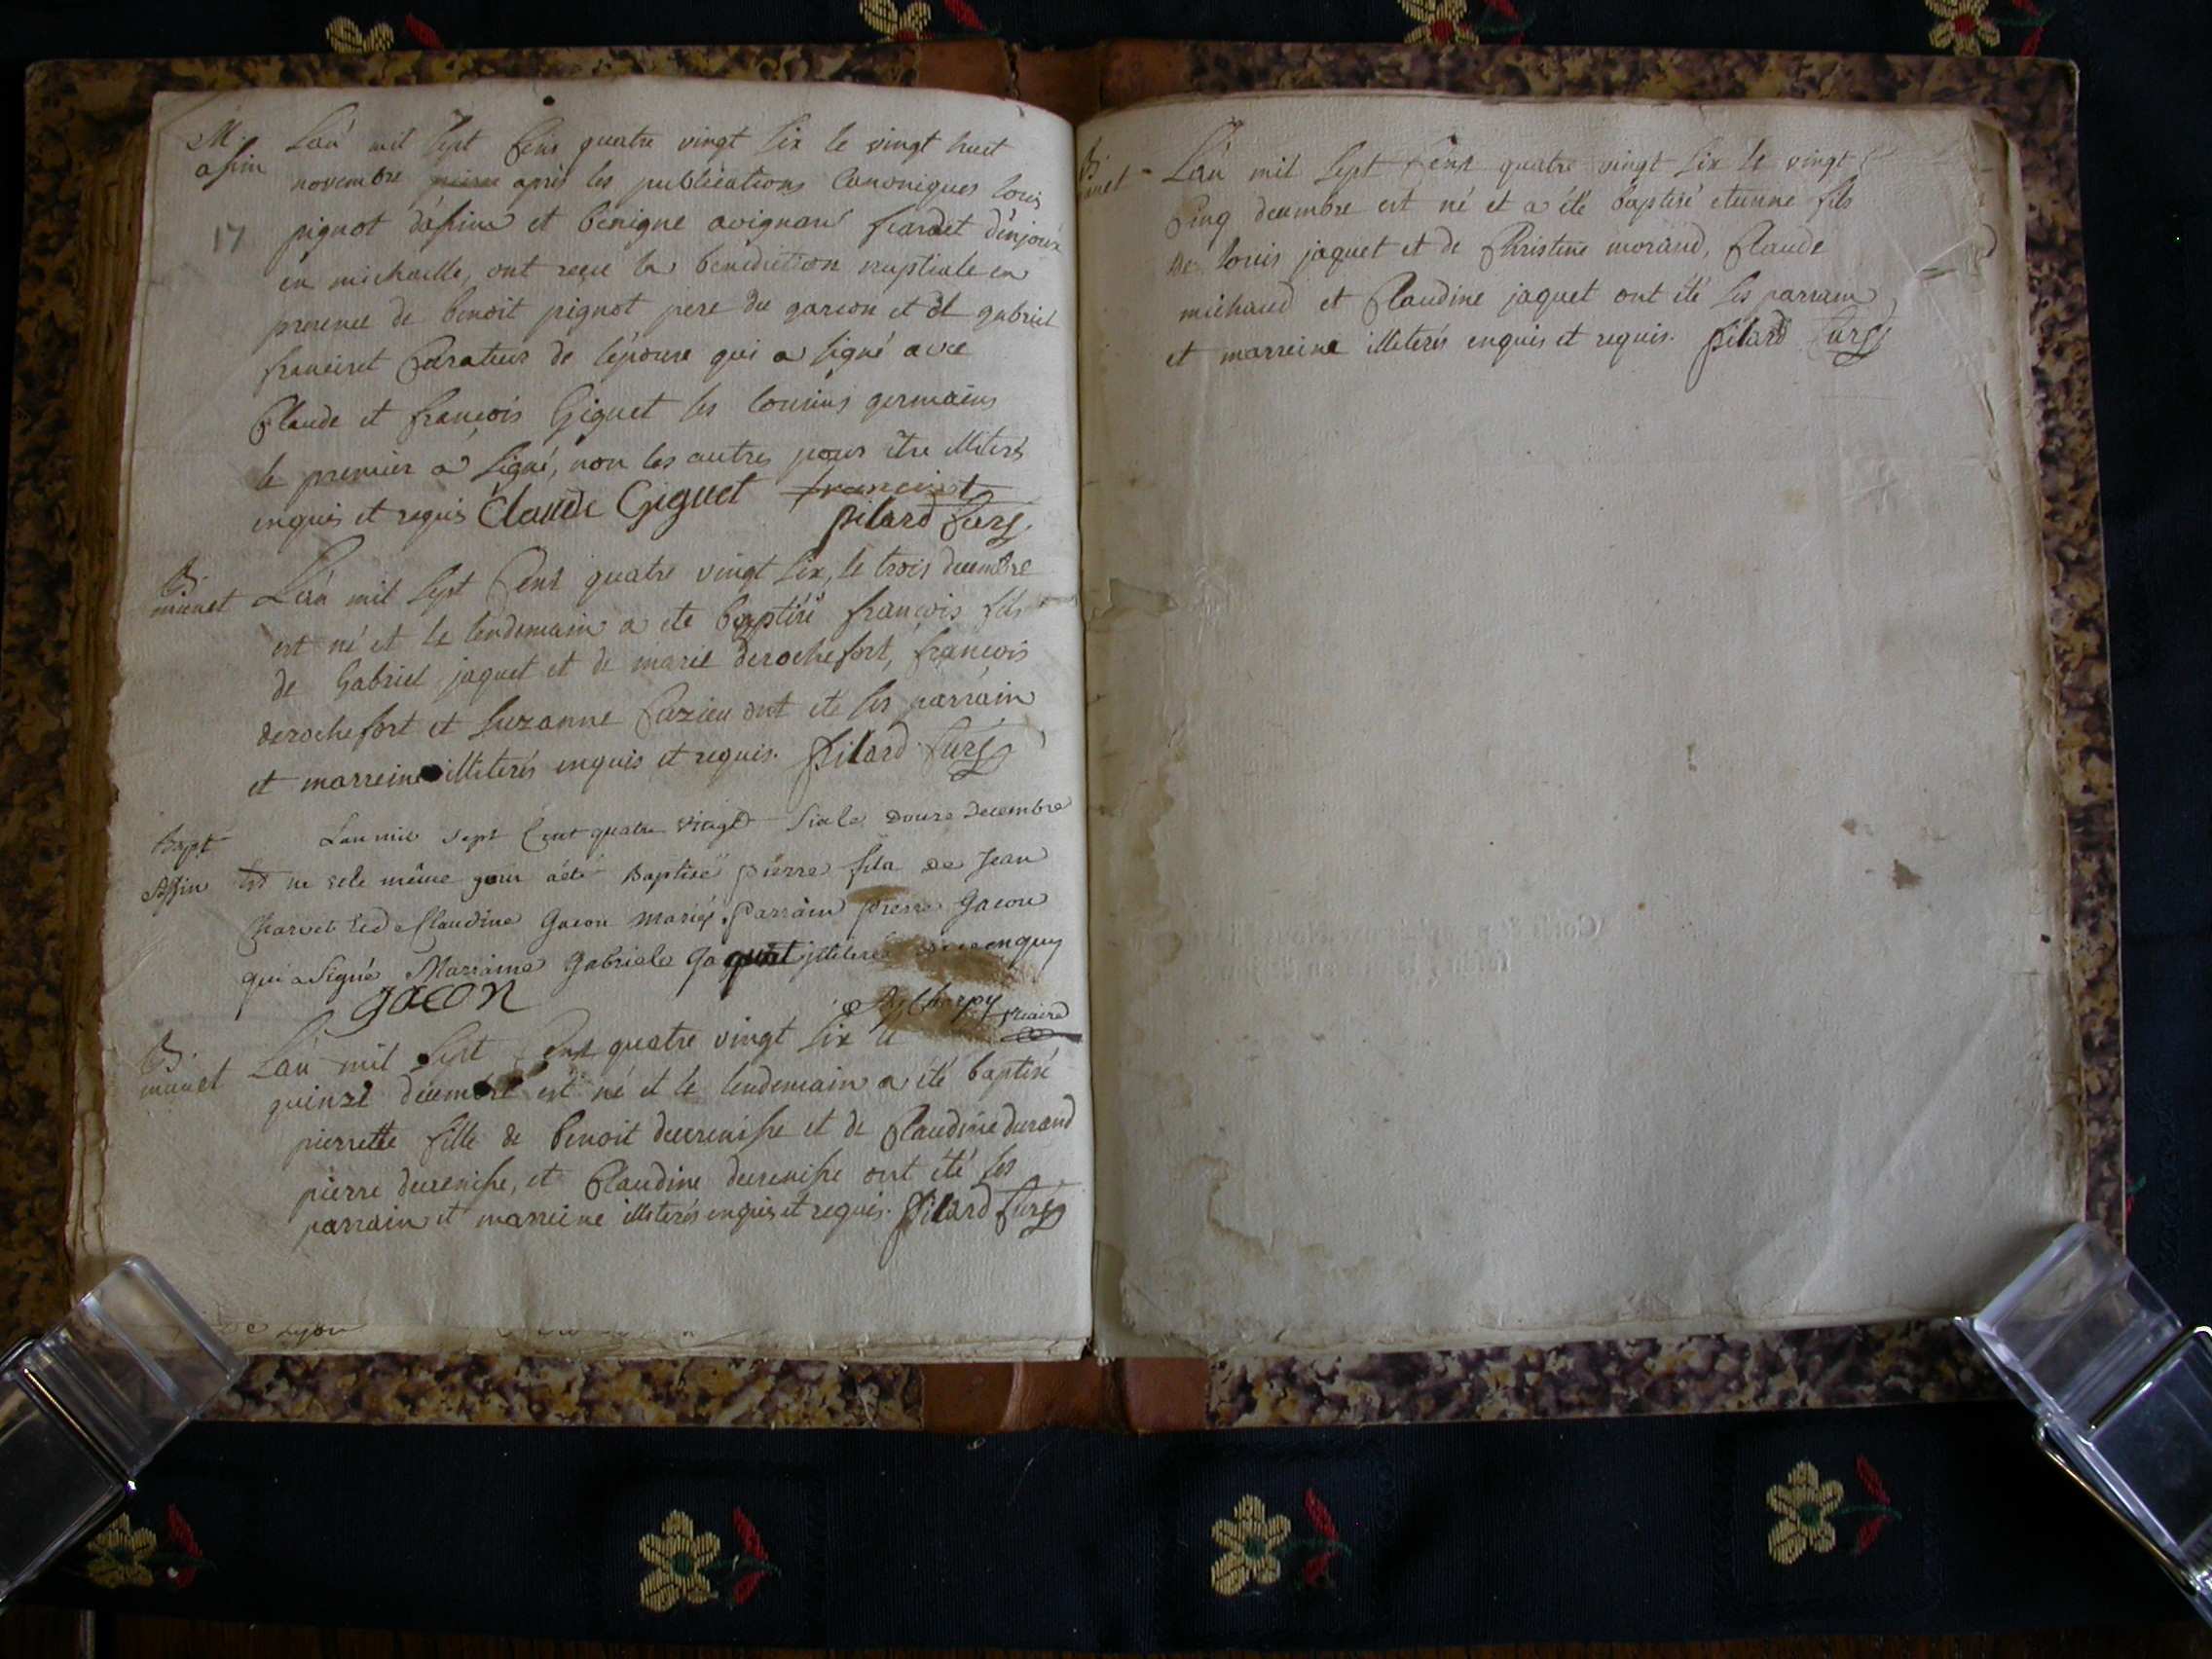 M.
asfin
17
L'an mil sept Cent quatre vingt six le vingt huet
novembre après les publications Canoniques louis
pignot d'asfins et benigne avignan d'injoux
en michaille, ont reçu la benediction nuptiale en
presence de benoit pignot pere du garcon et de gabriel
franciset Curateur de l'épouse qui a signé avec
Claude et françois Giguet ses cousins germains
le premier a signé, non les autres pour être illiterés
enquis et requis Claude Giguet franciset
pilard Curé
B.
munet
L'an mil sept Cent quatre vingt six, le trois decembre
est né et le lendemain a ete baptisé françois fils
de Gabriel jaquet et de marie derochefort, françois
derochefort et suzanne Cuzieu ont eté ses parrain
et marreine illiterés enquis et requis. pilard Curé
Bapt
asfin
L'an mil sept Cent quatre vingt six le douze decembre
Est né et le même jour a été Baptisé pierre fils de Jean
Charvet et de Claudine Gacon mariés. Parrain pierre Gacon
qui a signé Marraine Gabriele Jaquet illiterée enquy
gacon
vicaire
B.
munet
L'an mil sept Cent quatre vingt six le
quinze decembre est né et le lendemain a été baptisé
pierrette fille de benoit decrenisse et de Claudine durand
pierre decrenisse, et Claudine decrenisse ont été ses
parrain et marreine illiterés enquis et requis. pilard Curé
Lyon
B.
L'an mil sept Cent quatre vingt six le vingt
Cinq decembre est né et a été baptisé etienne fils
de louis jaquet et de Christine morand, Claude
michaud et Claudine jaquet ont été ses parrain
et marreine illiterés enquis et requis. pilard Curé